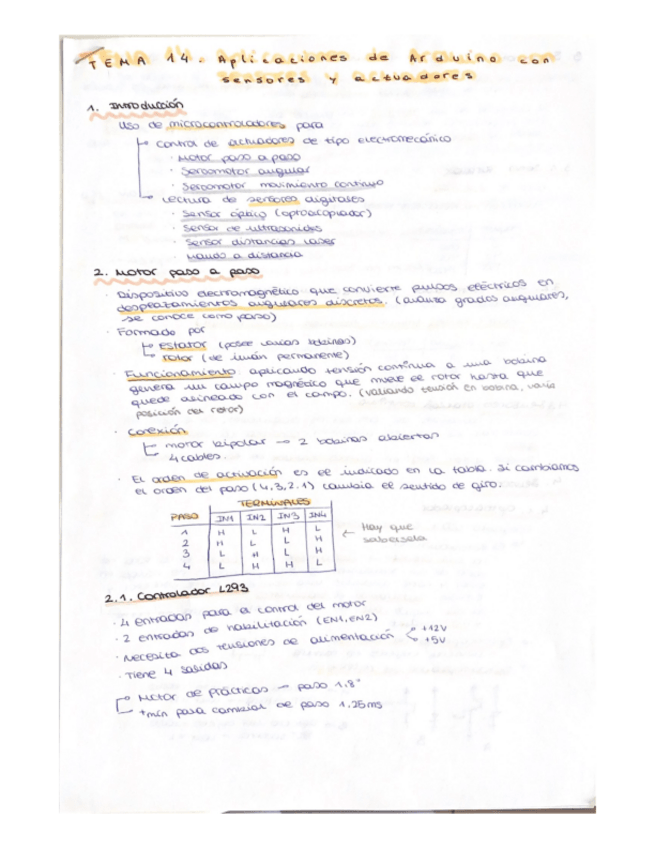 TEMA 14. Aplicaciones de Arduino con
sensores y actuadores
1. Introducción
Uso de microcontroladores para
Control de actuadores de tipo electromecánico
· Motor paso a paso
· Servomotor angular
· Servomotor movimiento continuo
Lectura de sensores digitales
· Sensor óptico (optoacoplador)
· Sensor de ultrasonidos
· Sensor distancias laser
· Mando a distancia
2. Motor paso a paso
· Dispositivo electromagnético que convierte pulsos eléctricos en
desplazamientos angulares discretos. (avanza grados angulares,
se conoce como paso)
· Formado por
estator (posee varias bobinas)
rotor (de imán permanente)
· Funcionamiento: aplicando tensión continua a una bobina
genera un campo magnético que mueve el rotor hasta que
quede alineado con el campo. (variando tensión en bobina, varía
posición del rotor)
· Conexión
motor bipolar → 2 bobinas abiertas
4 cables.
· El orden de activación es el indicado en la tabla. Si cambiamos
el orden del paso (4,3,2,1) cambia el sentido de giro.
TERMINALES
PASO IN1 IN2 IN3 IN4
1 H L H L
2 H L L H
3 L H L H
4 L H H L
← Hay que
sabersela
2.1. Controlador L293
· 4 entradas para el control del motor
· 2 entradas de habilitación (EN1, EN2)
· Necesita dos tensiones de alimentación +12V
+5V
· Tiene 4 salidas
Motor de prácticas → paso 1,8°
tmin para cambiar de paso 1,25ms